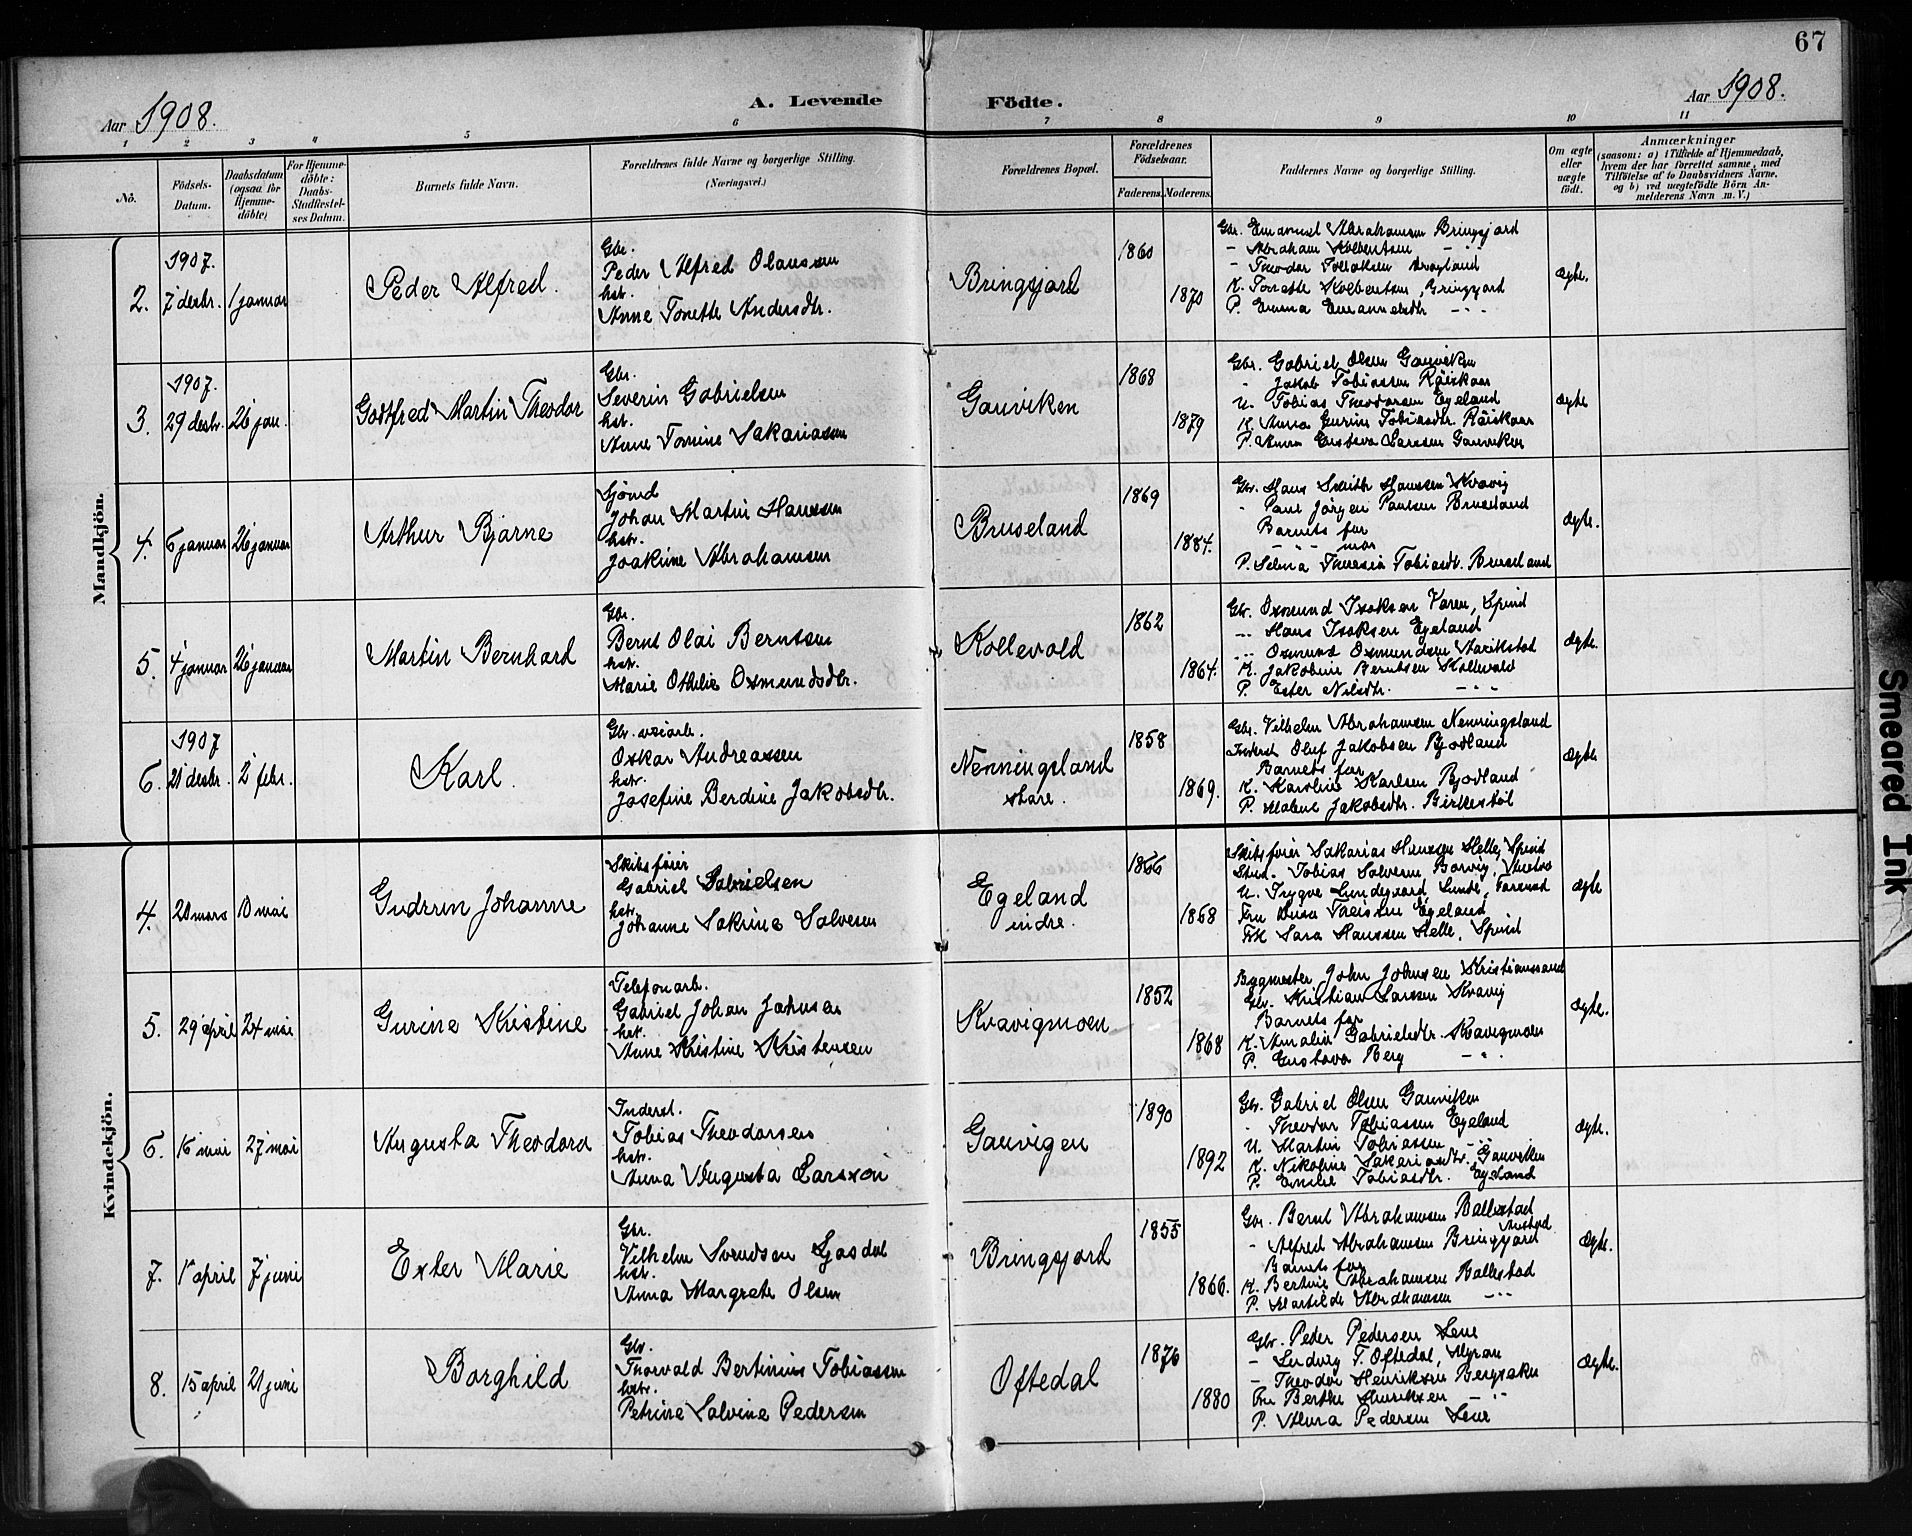 67
Aar 1908.
A. Levende Födte.
Aar 1908.
1 2 3 4 5 6 7 8 9 10 11
No.
Födsels-Datum.
Daabsdatum (ogsaa for Hjemme-döbte)
For Hjemme-döbte: Daabs-Stadfestel-ses Datum.
Barnets fulde Navn.
Forældrenes fulde Navne og borgerlige Stilling.
(Næringsvei.)
Forældrenes Bopæl.
Forældrenes Födselsaar.
Faderens. Moderens.
Faddernes Navne og borgerlige Stilling.
Om ægte eller uægte födt.
Anmærkninger
(saasom: a) i Tilfælde af Hjemmedaab, hvem der har forrettet samme, med Tilföielse af to Daabsvidners Navne, og b) ved uægtefödte Börn An-melderens Navn m. V.)
Mandkjön.
2. 1907. 7 desbr. 1 januar
Peder Alfred.
Gbr.
Peder Alfred Olaussen
hstr.
Anne Tonette Andersdtr.
Bringsjord
1860 1870
Gbr. Emanuel Abrahamsen Bringsjord
- Abraham Kolbentsen - " -
- Theodor Tollaksen
K. Tonette Kolbentsen, Bringsjord
P. Emma Emanuelsdtr - " -
ægte.
3. 1907. 29 desbr. 26 jan.
Godtfred Martin Theodor
Gbr.
Severin Gabrielsen
hstr.
Anne Tomine Sakariasen
Gauviken
1868 1879
Gbr. Gabriel Olsen Gauviken
- Jakob Tobiassen Röiskaar
U. Tobias Theodorsen Egeland
K. Anna Gurine Tobiasdtr. Röiskaar
P. Anna Gustava Larssen Gauviken
ægte
4. 6 januar 26 januar
Arthur Bjarne
Sjömd
Johan Martin Hanssen
hstr.
Joakime Abrahamsen
Bruseland
1869 1884.
Gbr. Hans Smith Hanssen Kvavig
" Paul Jörgen Paulsen Bruseland
Barnets far
- " - mor
P. Selma Theresia Tobiasdtr. Bruseland
ægte.
5. 4 januar 26 januar
Martin Bernhard
Gbr.
Bernt Olai Berntsen
hstr.
Marie Othilie Osmundsdtr.
Kollevold
1862 1864.
Gbr. Osmund Isaksen Varen, Spind
- " - Hans Isaksen Egeland
- " - Osmund Osmundsen
K. Jakobine Berntsen Kollevold
P. Ester Nilsdtr. - " -
ægte.
6. 1907 21 desbr. 2 febr.
Karl.
Gbr. veiarb.
Oskar Andreassen
hstr.
Josefine Berdine Jakobsdtr.
Nenningsland store.
1858 1869.
Gbr. Vilhelm Abrahamsen Nenningsland
Inderst Oluf Jakobsen Bjodland
Barnets far
K. Karoline Karlsen Bjodland
P. Malene Jakobsdtr. Birkestöl
ægte
Kvindekjön.
4. 20 mars 10 mai
Gudrun Johanne
Skibsförer
Gabriel Gabrielsen
hstr.
Johanne Sakrine Salvesen
Egeland indre.
1866 1868
Skibsförer Sakarias Hanssen Helle, Spind
Stud. Tobias Salvesen, Borvig,
U. Trygve Lundegaard, Lunde, Farsund
Fru Egeland
Frk Sara Hanssen Helle, Spind
ægte
5. 29 april 24 mai
Gurine Kristine
Telefonarb.
Gabriel Johan Johnsen
hstr.
Anne Kristine Kristensen
Kvavigmoen
1852 1868
Bygmester John Johnsen Kristianssand
Gbr. Kristian Larssen Kvavig
Barnets far
K. Amalie Gabrielsdtr. Kvavigmoen
P. Gustava Berg - " -
ægte.
6. 16 mai 27 mai
Augusta Theodora
Inderst.
Tobias Theodorsen
hstr.
Anna Augusta Larsson
Gauvigen
1890 1892
Gbr. Gabriel Olsen Gauviken
- Theodor Tobiassen Egeland
U. Martin Tobiassen - " -
K. Nikoline Sakariasdtr. Gauviken
P. Emilie Tobiasdtr. Egeland
ægte.
7. 1 april 7 juni
Ester Marie
Gbr.
Vilhelm Svendsen Gjosdal
hstr.
Anna Margrete Olsen
Bringsjord
1855 1866.
Gbr. Bernt Abrahamsen Ballestad
Austad
- Alfred Abrahamsen Bringsjord
Barnets far
K. Bertine Abrahamsen Ballestad
P. Matilde Abrahamsen - " -
ægte.
8. 15 april 21 juni
Borghild
Gbr.
Thorvald Bertinius Tobiassen
hstr.
Petrine Salvine Pedersen
Oftedal
1876 1880
Gbr. Peder Pedersen Lene
- Ludvig T. Oftedal,
- Theodor Henriksen Bergsaker
Fru Berthe Henriksen - " -
P. Anna Pedersen Lene
ægte.
Smeared Ink